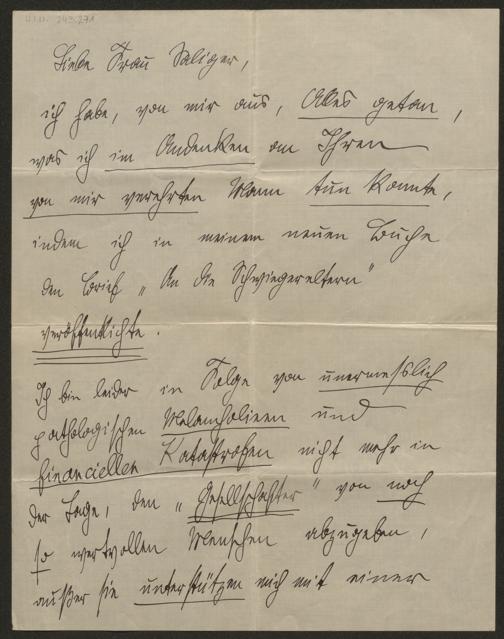 H.I.N. 243.271
Liebe Frau Saliger,
ich habe, von mir aus, Alles getan,
was ich im Andenken an Ihren
von mir verehrten Mann tun konnte,
indem ich in meinem neuen Buche
den Brief „An die Schwiegereltern"
veröffentlichte.
Ich bin leider in Folge von unermesslich
pathologischen Melancholieen und
financiellen Katastrofen nicht mehr in
der Lage, den „Gesellschafter" von noch
so wertvollen Menschen abzugeben,
außer sie unterstützen mich mit einer